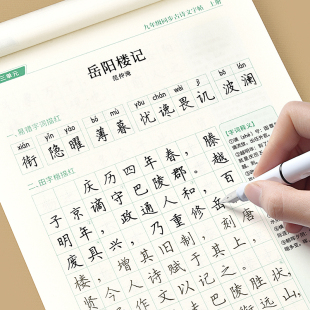 九年级同步古诗文字帖 上册
三单元
岳阳楼记
范仲淹
一、易错字词描红
xián yǐn yào bó mù yōu chán wèi jī bō lán
衔 隐 曜 薄 暮 忧 谗 畏 讥 波 澜
二、田字格描红
庆历四年春，滕
子京谪守巴陵郡。越
明年，政通人和，百
废具兴，乃重修岳
楼，增其旧制，刻唐
贤今人诗赋于其上，
作文以记之。
巴陵胜状，
衔远山，
【字词释义】